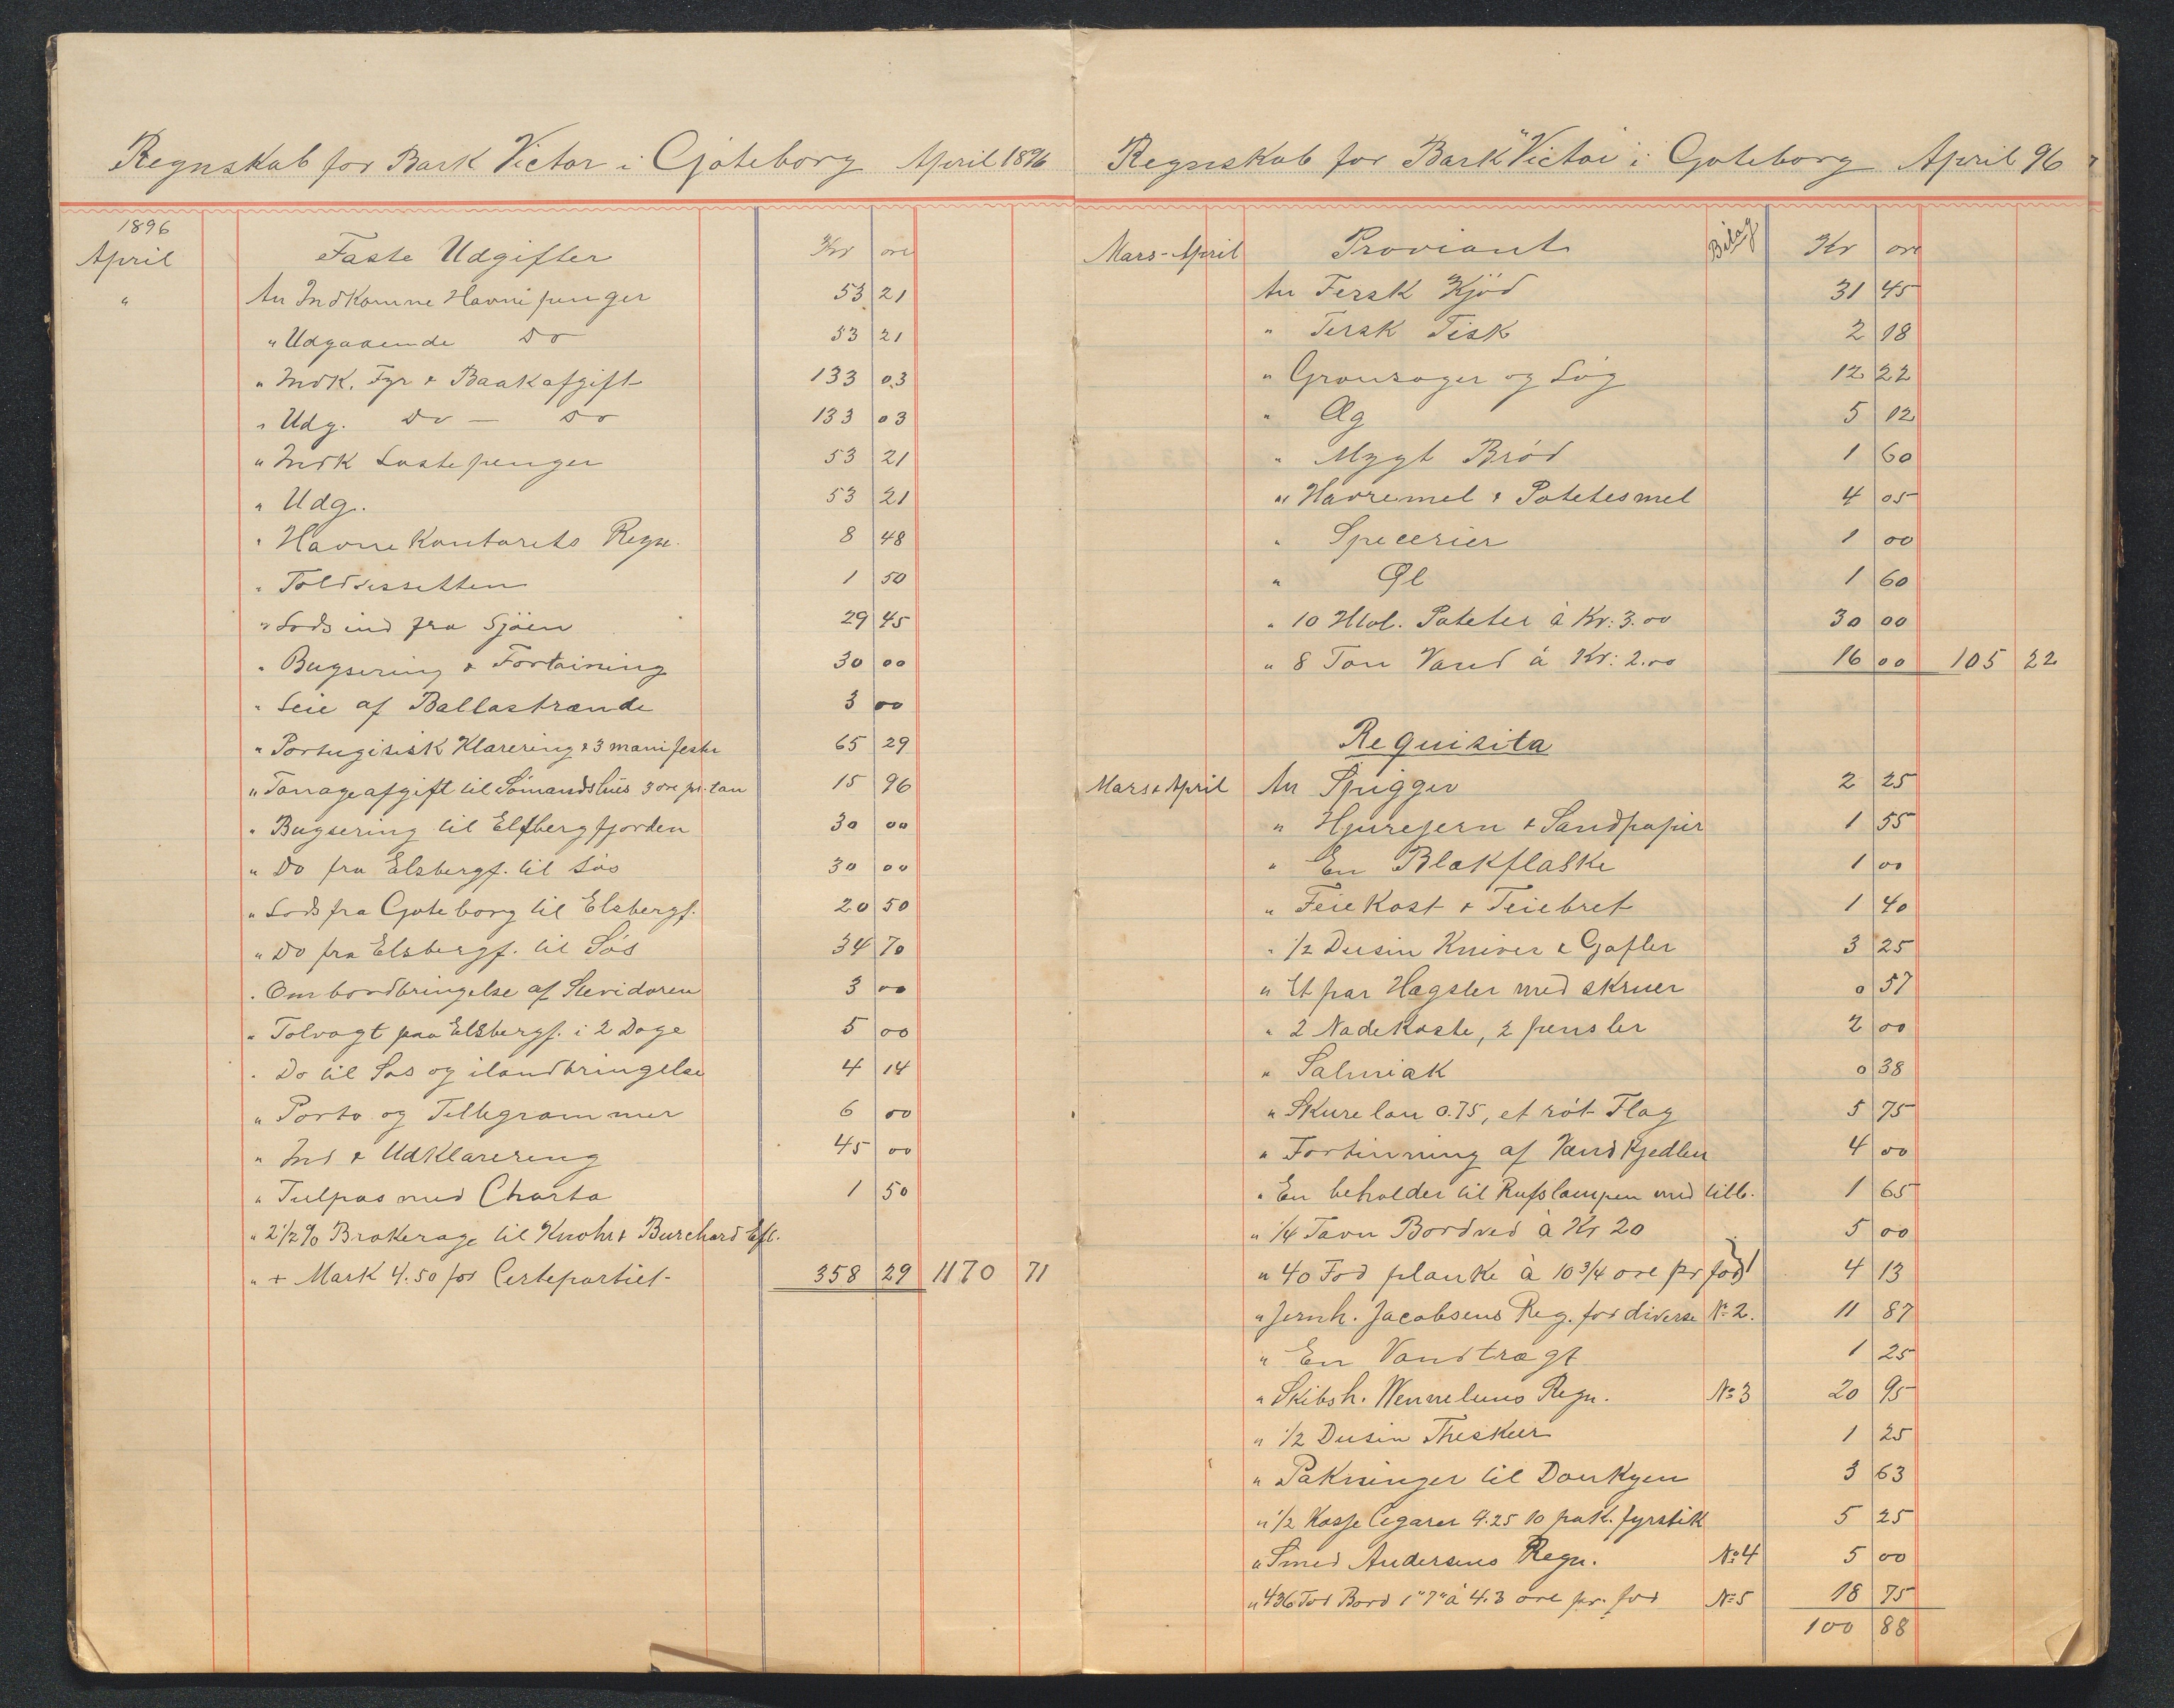 Regnskab for Bark Victor i Gjøteborg April 1896
1896
April Faste Udgifter Kr ore
" An Indkomne Havnepenger 53 21
" Udgaaende Do 53 21
" Indk. Fyr & Baakafgift 133 03
" Udg. Do — Do 133 03
" Indk Lastepenger 53 21
" Udg. 53 21
" Havnekontorets Regn. 8 48
" Toldsessetten 1 50
" Lods ind fra Sjöen 29 45
" Bugsering & Fortöining 30 00
" Leie af Ballastrænde 3 00
" Portugisisk Klarering & 3 manifester 65 29
" Tonageafgift til Sömandshuis 3 ore pr. ton 15 96
" Bugsering til Elfbergfjorden 30 00
" Do fra Elsbergf. til Søs 30 00
" Lods fra Gøteborg til Elsbergf. 20 50
" Do fra Elsbergf. til Søs 34 70
" Ombordbringelse af Stevidoren 3 00
" Tolvagt paa Elsbergf. i 2 Dage 5 00
" Do til Søs og ilandbringelse 4 14
" Porto og Tellegrammer 6 00
" Ind & Udklarering 45 00
" Tulpas med Charta 1 50
" 2 1/2 % Brokerage til Knohr & Burchard Efl.
" + Mark 4.50 for Certepartiet - 358 29 1170 71
Regnskab for Bark "Victor i Gøteborg April 96
Mars-April Proviant Bilag Kr ore
An Fersk Kjöd 31 45
" Fersk Fisk 2 18
" Grønsager og Løg 12 22
" Æg 5 12
" Mygt Bröd 1 60
" Havremel & Potetesmel 4 05
" Specerier 1 00
" Øl 1 60
" 10 Hlol. Poteter à Kr: 3.00 30 00
" 8 Ton Vand à Kr: 2.00 16 00 105 22
Requisita
Mars & April An Spigger 2 25
" Hjørejern & Sandpapir 1 55
" En Blækflaske 1 00
" Feiekost & Feiebret 1 40
" 1/2 Dusin Kniver & Gafler 3 25
" Et par Hægsler med skruer 0 57
" 2 Nadekoste, 2 pensler 2 00
" Salmiak 0 38
" Skurelou 0.75, et röt Flag 5 75
" Fortinning af Vandkjedlen 4 00
" En beholder til Rufslampen med tilb. 1 65
" 1/4 Favn Bordved à Kr 20 5 00
" 40 Fod planke à 10 3/4 ore pr fod 4 13
" Jernh. Jacobsens Reg. for diverse No 2. 11 87
" En Vandtragt 1 25
" Skibsh. Wennelunds Regn. No 3 20 95
" 1/2 Dusin Theskeer 1 25
" Pakninger til Donkyen 3 63
" 1/2 Kasse Cigarer 4.25 10 pak. fyrstik 5 25
" Smed Andersens Regn. No 4 5 00
" 436 Fod Bord 1" 7" à 4.3 øre pr. fod No 5 18 75
100 88